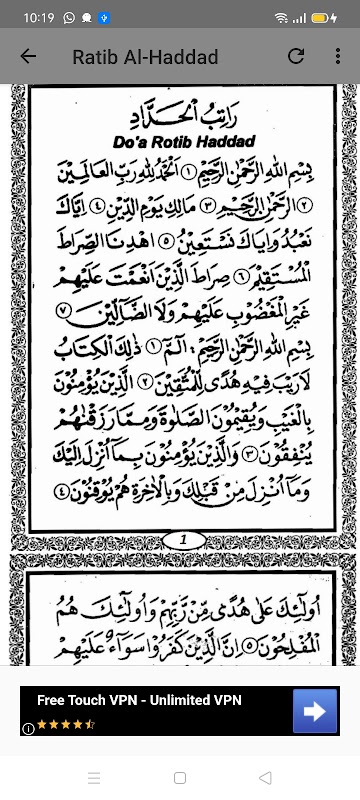 10:19
Ratib Al-Haddad
رَاتِبُ الْحَدَّادِ
Do'a Rotib Haddad
بِسْمِ اللهِ الرَّحْمٰنِ الرَّحِيْمِ ١ اَلْحَمْدُ لِلّٰهِ رَبِّ الْعَالَمِيْنَ
٢ الرَّحْمٰنِ الرَّحِيْمِ ٣ مَالِكِ يَوْمِ الدِّيْنِ ٤ اِيَّاكَ
نَعْبُدُ وَاِيَّاكَ نَسْتَعِيْنُ ٥ اهْدِنَا الصِّرَاطَ
الْمُسْتَقِيْمَ ٦ صِرَاطَ الَّذِيْنَ اَنْعَمْتَ عَلَيْهِمْ
غَيْرِ الْمَغْضُوْبِ عَلَيْهِمْ وَلَا الضَّالِّيْنَ ٧
بِسْمِ اللهِ الرَّحْمٰنِ الرَّحِيْمِ : الٓمّٓ ١ ذٰلِكَ الْكِتَابُ
لَا رَيْبَ فِيْهِ هُدًى لِلْمُتَّقِيْنَ ٢ الَّذِيْنَ يُؤْمِنُوْنَ
بِالْغَيْبِ وَيُقِيْمُوْنَ الصَّلٰوةَ وَمِمَّا رَزَقْنٰهُمْ
يُنْفِقُوْنَ ٣ وَالَّذِيْنَ يُؤْمِنُوْنَ بِمَا اُنْزِلَ اِلَيْكَ
وَمَا اُنْزِلَ مِنْ قَبْلِكَ وَبِالْاٰخِرَةِ هُمْ يُوْقِنُوْنَ ٤
1
اُولٰٓئِكَ عَلٰى هُدًى مِنْ رَبِّهِمْ وَاُولٰٓئِكَ هُمُ
الْمُفْلِحُوْنَ ٥ اِنَّ الَّذِيْنَ كَفَرُوْا سَوَآءٌ عَلَيْهِمْ
Free Touch VPN - Unlimited VPN